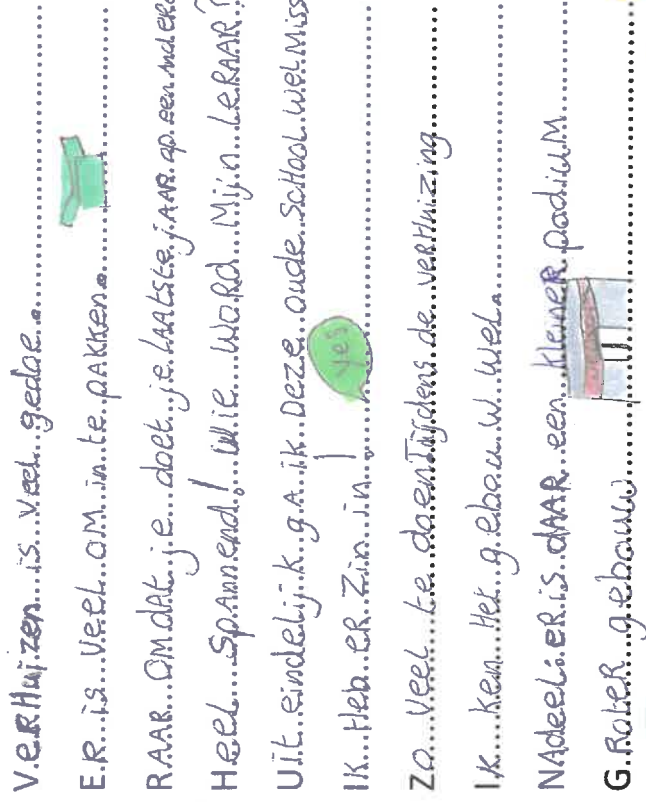 VERHuizen is veel gedoe.
ER is veel om in te pakken.
RAAR omdat je doet je laatste jaar op een ander
Heel spannend! Wie word Mijn LeRAAR?
Uiteindelijk ga ik deze oude school wel miss
IK Heb ER Zin in! yes
Zo veel te doen Tijdens de verhuizing
Ik ken Het gebouw wel.
NAdeel: eR is dAAR een kleiner podium
GRoteR gebouw